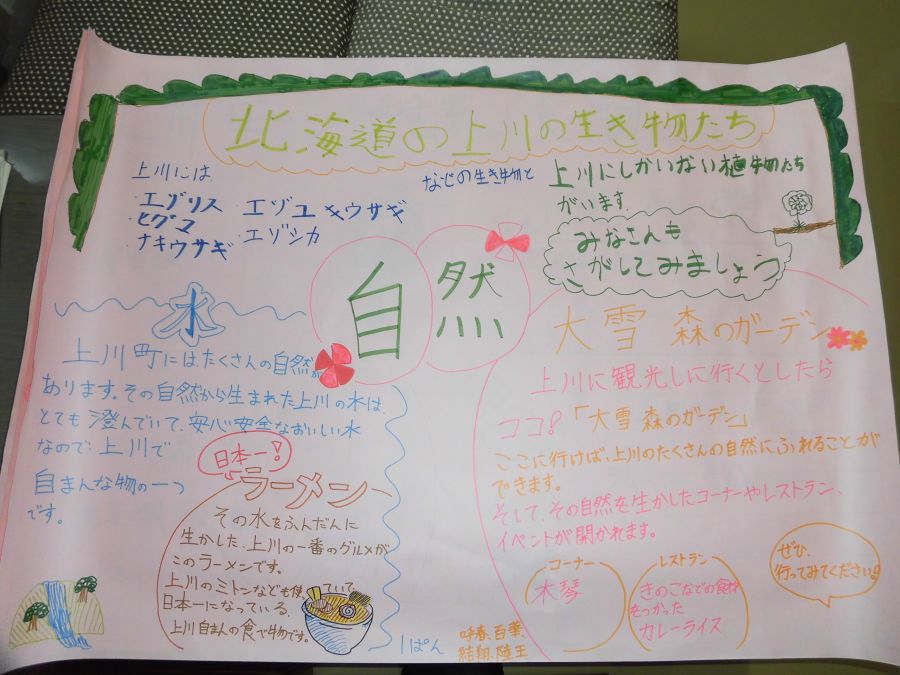 北海道の上川の生き物たち
上川には
・エゾリス
・ヒグマ
・ナキウサギ
・エゾユキウサギ
・エゾシカ
などの生き物と
上川にしかいない植物たち
がいます。
みなさんも
さがしてみましょう
自然
水
上川町には、たくさんの自然が
あります。その自然から生まれた上川の水は、
とても澄んでいて、安心安全なおいしい水
なので、上川で
自まんな物の一つ
です。
日本一!
ラーメン
その水をふんだんに
生かした、上川の一番のグルメが
このラーメンです。
上川のミトンなども使っていて、
日本一になっている、
上川自まんの食べ物です。
大雪 森のガーデン
上川に観光しに行くとしたら
ココ!「大雪 森のガーデン」
ここに行けば、上川のたくさんの自然にふれることが
できます。
そして、その自然を生かしたコーナーやレストラン、
イベントが開かれます。
コーナー
木琴
レストラン
きのこなどの食材
をつかった
カレーライス
ぜひ、
行ってみてください!
1ぱん
百華、
結翔、陸王